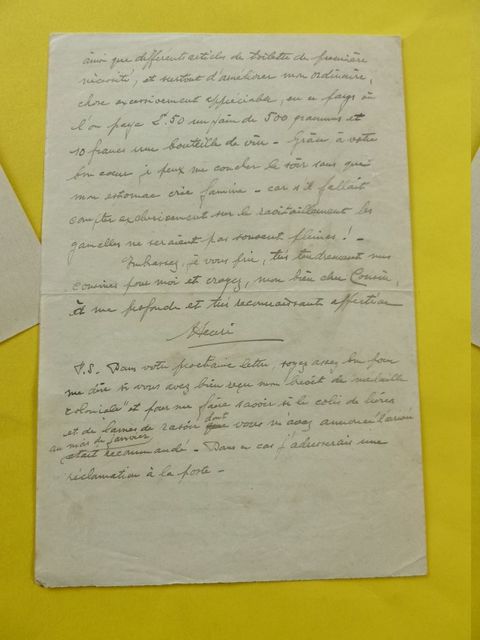 ainsi que différents articles de toilette de première
nécessité, et surtout d'améliorer mon ordinaire,
chose excessivement appréciable, en ce pays où
l'on paye 2f.50 un pain de 500 grammes et
10 francs une bouteille de vin. - Grâce à votre
bon cœur je peux me coucher le soir sans que
mon estomac crie famine - car s'il fallait
compter exclusivement sur le ravitaillement les
gamelles ne seraient pas souvent pleines ! -
Embrassez, je vous prie, très tendrement mes
cousines pour moi et croyez, mon bien cher Cousin,
à ma profonde et très reconnaissante affection
Henri
P.S. Dans votre prochaine lettre, soyez assez bon pour
me dire si vous avez bien reçu mon brevet de médaille
coloniale" et pour me faire savoir si le colis de livres
et de lames de rasoir dont vous m'avez annoncé l'envoi
au mois de janvier
était recommandé - Dans ce cas j'adresserais une
réclamation à la poste -